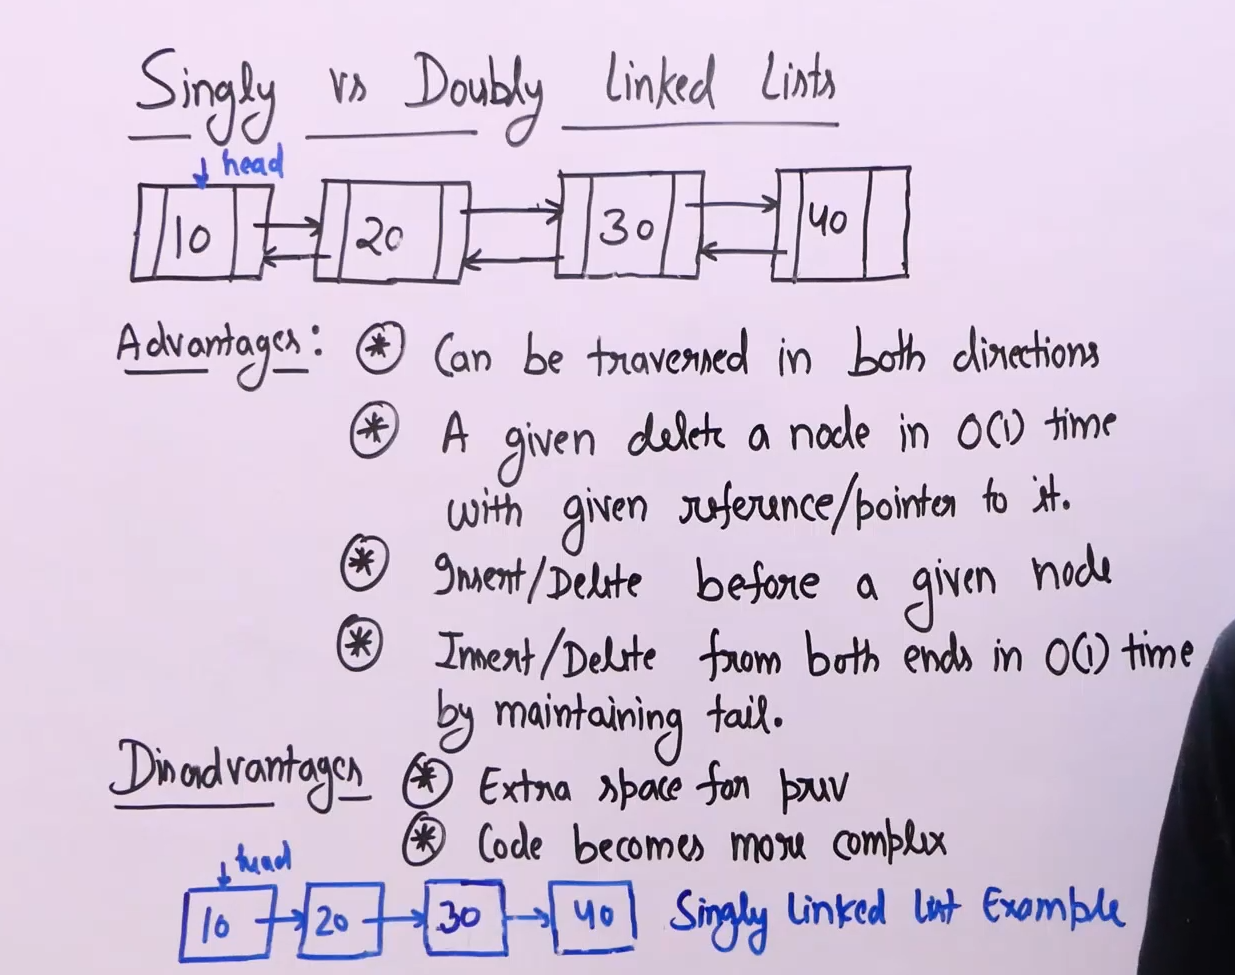 Singly vs Doubly Linked Lists
head
10 20 30 40
Advantages: * Can be traversed in both directions
* A given delete a node in O(1) time
with given reference/pointer to it.
* Insert/Delete before a given node
* Insert/Delete from both ends in O(1) time
by maintaining tail.
Disadvantages * Extra space for prev
* Code becomes more complex
head
10 20 30 40 Singly Linked List Example